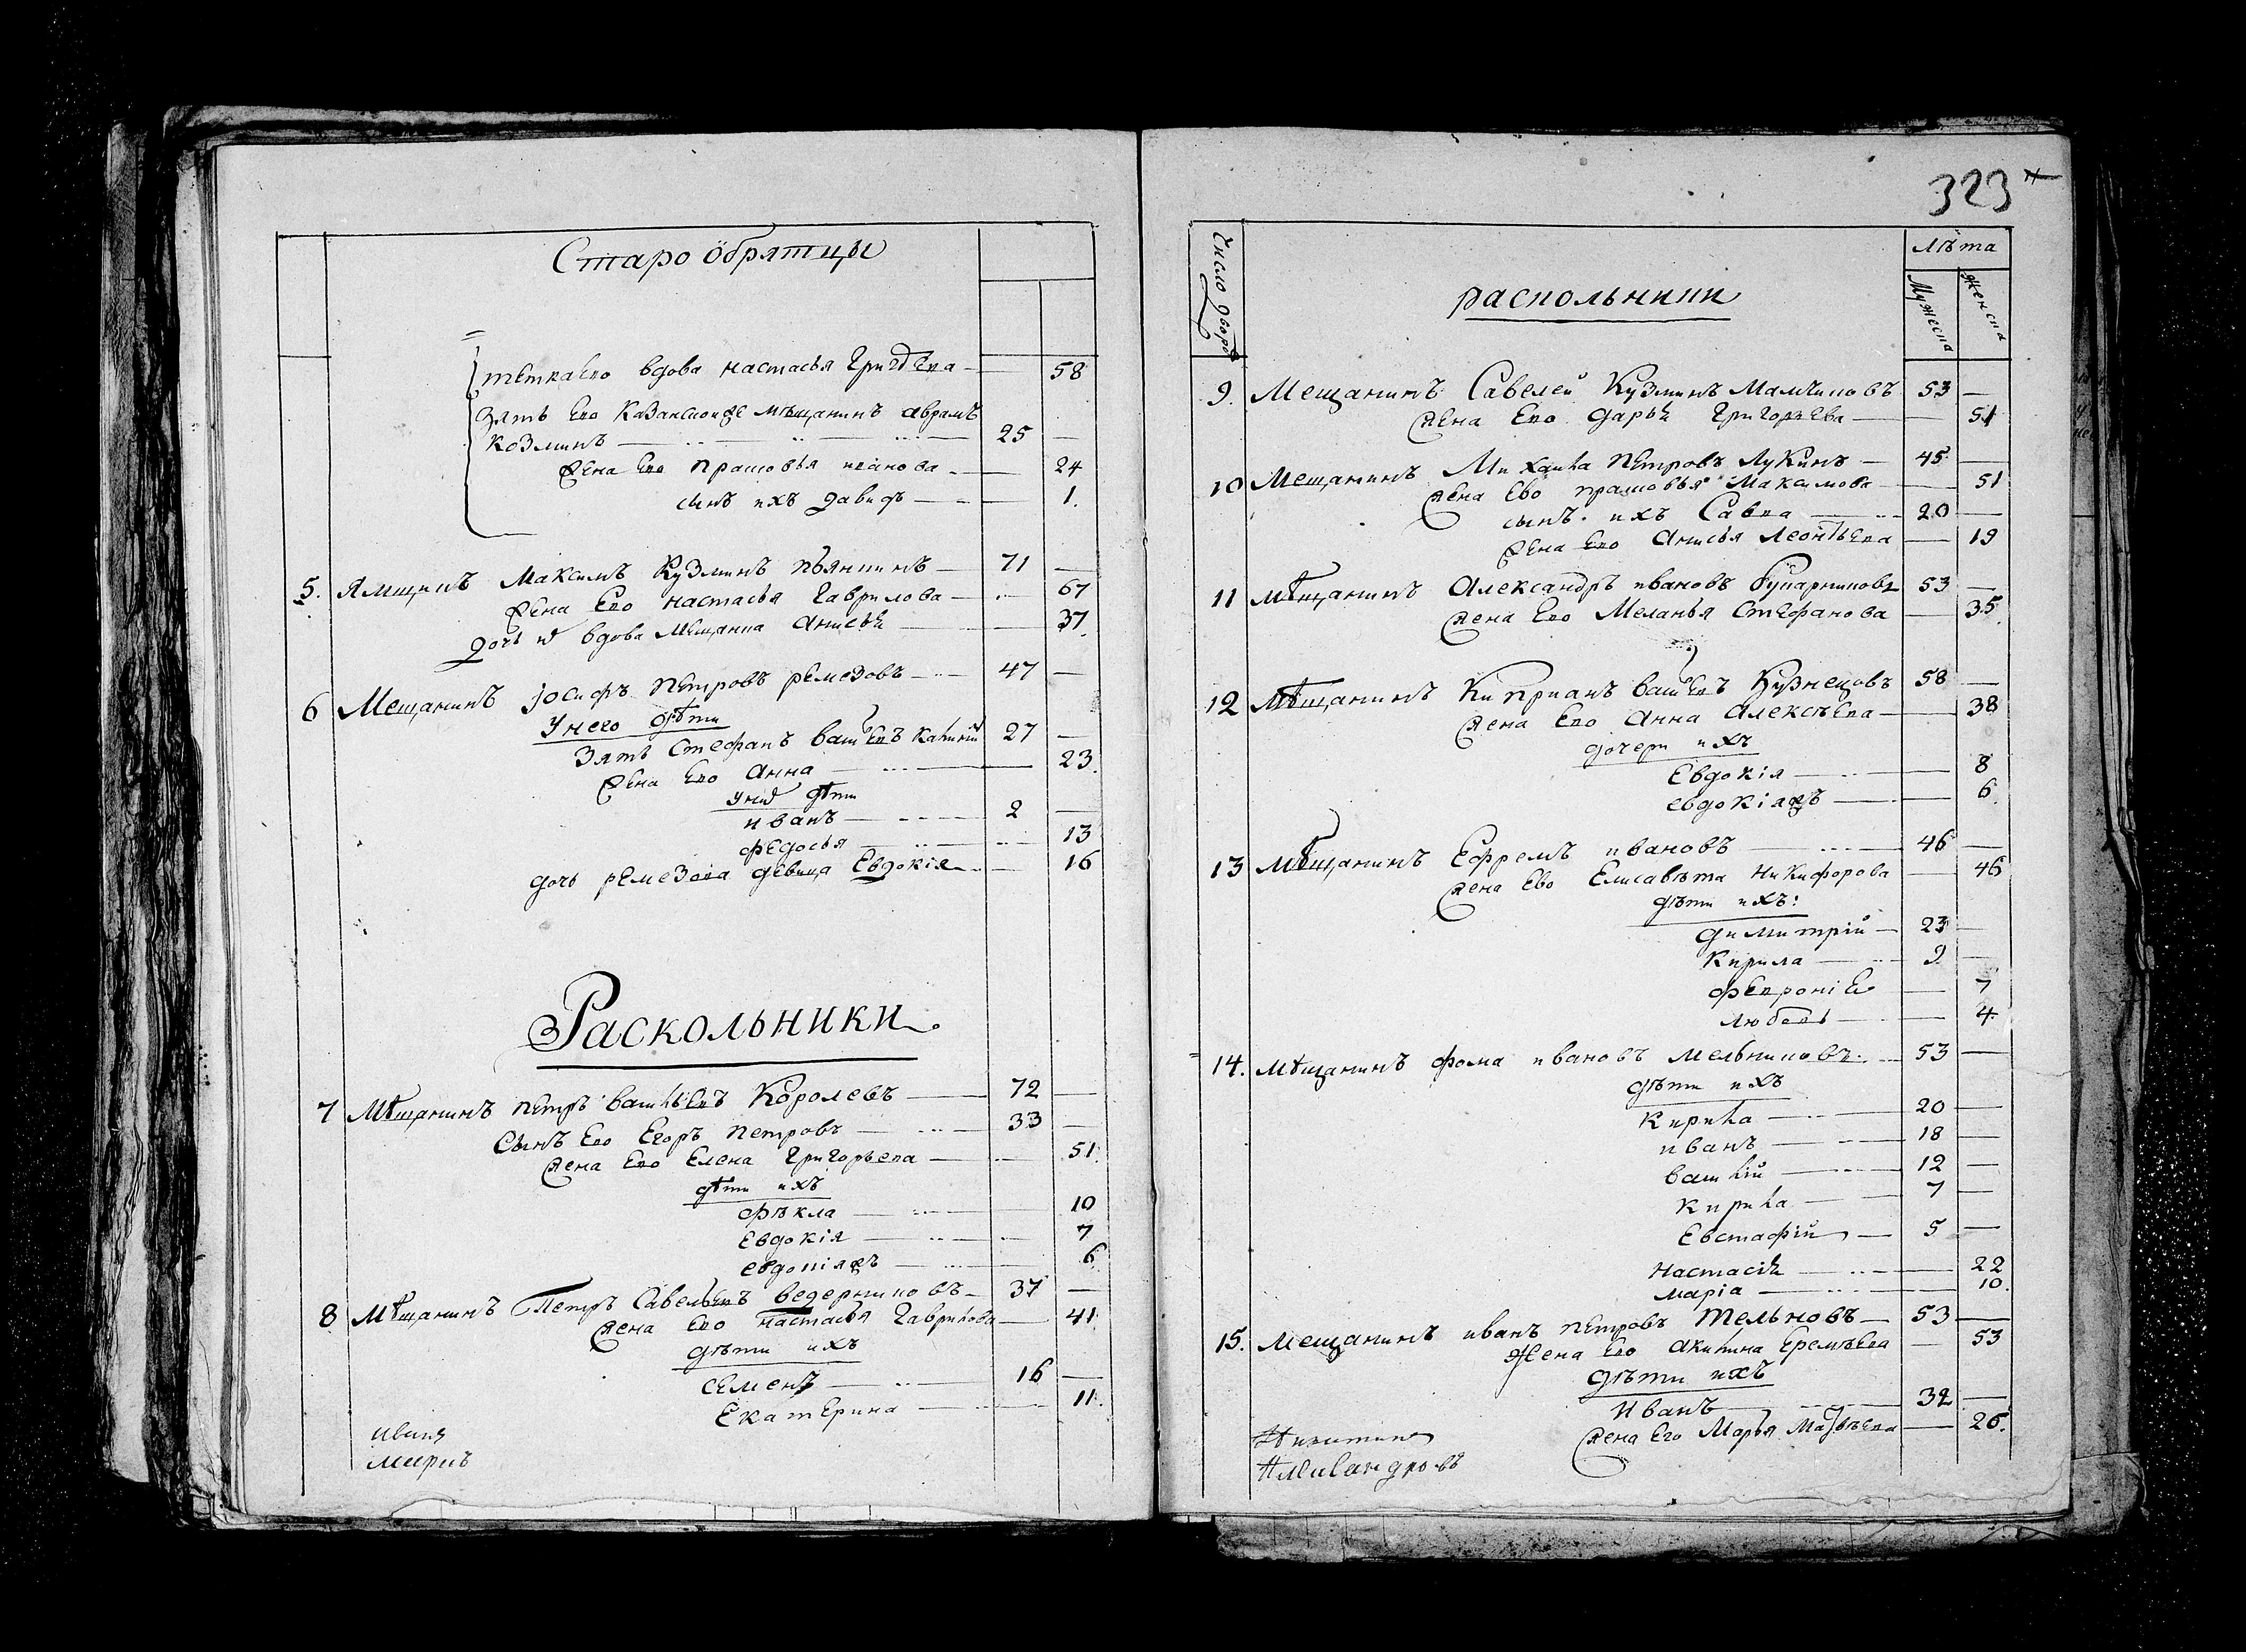 Старо обрятцы
тетка Ево вдова настасья Григорьева 58
зять Ево Казанской же мѣщанинъ аврамъ
козминъ 25
жена Ево прасковья иванова 24
сынъ ихъ давидъ 1.
5. Ямщикъ Максимъ Кузминъ пьянкинъ 71
жена Ево настасья Гаврилова 67
дочь вдова Мещанка Анисья 37
6 Мещанинъ јосифъ Петровъ ремезовъ 47
У него дѣти
Зять Стефанъ васильевъ 27
жена Ево Анна 23.
У нихъ дѣти
иванъ 2
федосья 13
дочь ремезова девица Евдокія 16
Раскольники.
7 Мѣщанинъ петръ васильевъ Королевъ 72
Сынъ Ево Егоръ Петровъ 33
жена Ево Елена Григорьева 51.
дѣти ихъ
фѣкла 10
Евдокія 7
евдокіяжъ 6.
8 Мѣщанинъ Петръ Савельевъ ведерниковъ 37
жена Ево настасья Гаврилова 41
дѣти ихъ
семенъ 16
Екатерина 11.
323
Число дворовъ
Лѣта
Мужеска
Женска
раскольники
9. Мещанинъ Савелей Кузминъ Мамчиковъ 53
жена Ево дарья Григорьева 51
10 Мещанинъ Михаила Петровъ Лукинъ 45
жена Ево прасковья Максимова 51
сынъ ихъ Савва 20
жена Ево Анисья Леонтьева 19
11 мѣщанинъ Александръ ивановъ 53
жена Ево Меланья Стефанова 35.
12 Мѣщанинъ Киприанъ васильевъ Кузнецовъ 58
жена Ево Анна Алексѣева 38
дочери ихъ
Евдокія 8
евдокіяжъ 6.
13 Мѣщанинъ Ефремъ ивановъ 46
жена Ево Елисавѣта Никифорова 46
дѣти ихъ:
димитрій 23
Кирила 9
февронія 7
любовь 4.
14. Мѣщанинъ фома ивановъ мельниковъ 53
дѣти ихъ
Кирила 20
иванъ 18
василій 12
Кирила 7
Евстафій 5
настасья 22
марія 10.
15. Мещанинъ иванъ петровъ тельновъ 53
жена Ево акилина Еремѣева 53
дѣти ихъ
иванъ 32
жена Его Марья Матвѣева 26.